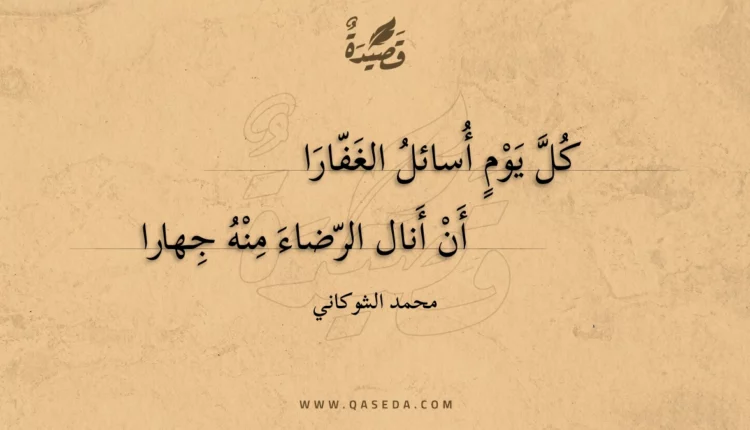 قَصِيدَةٌ
كُلَّ يَوْمٍ أُسائلُ الغَفّارَا
أَنْ أَنال الرّضاءَ مِنْهُ جِهارا
محمد الشوكاني
WWW.QASEDA.COM